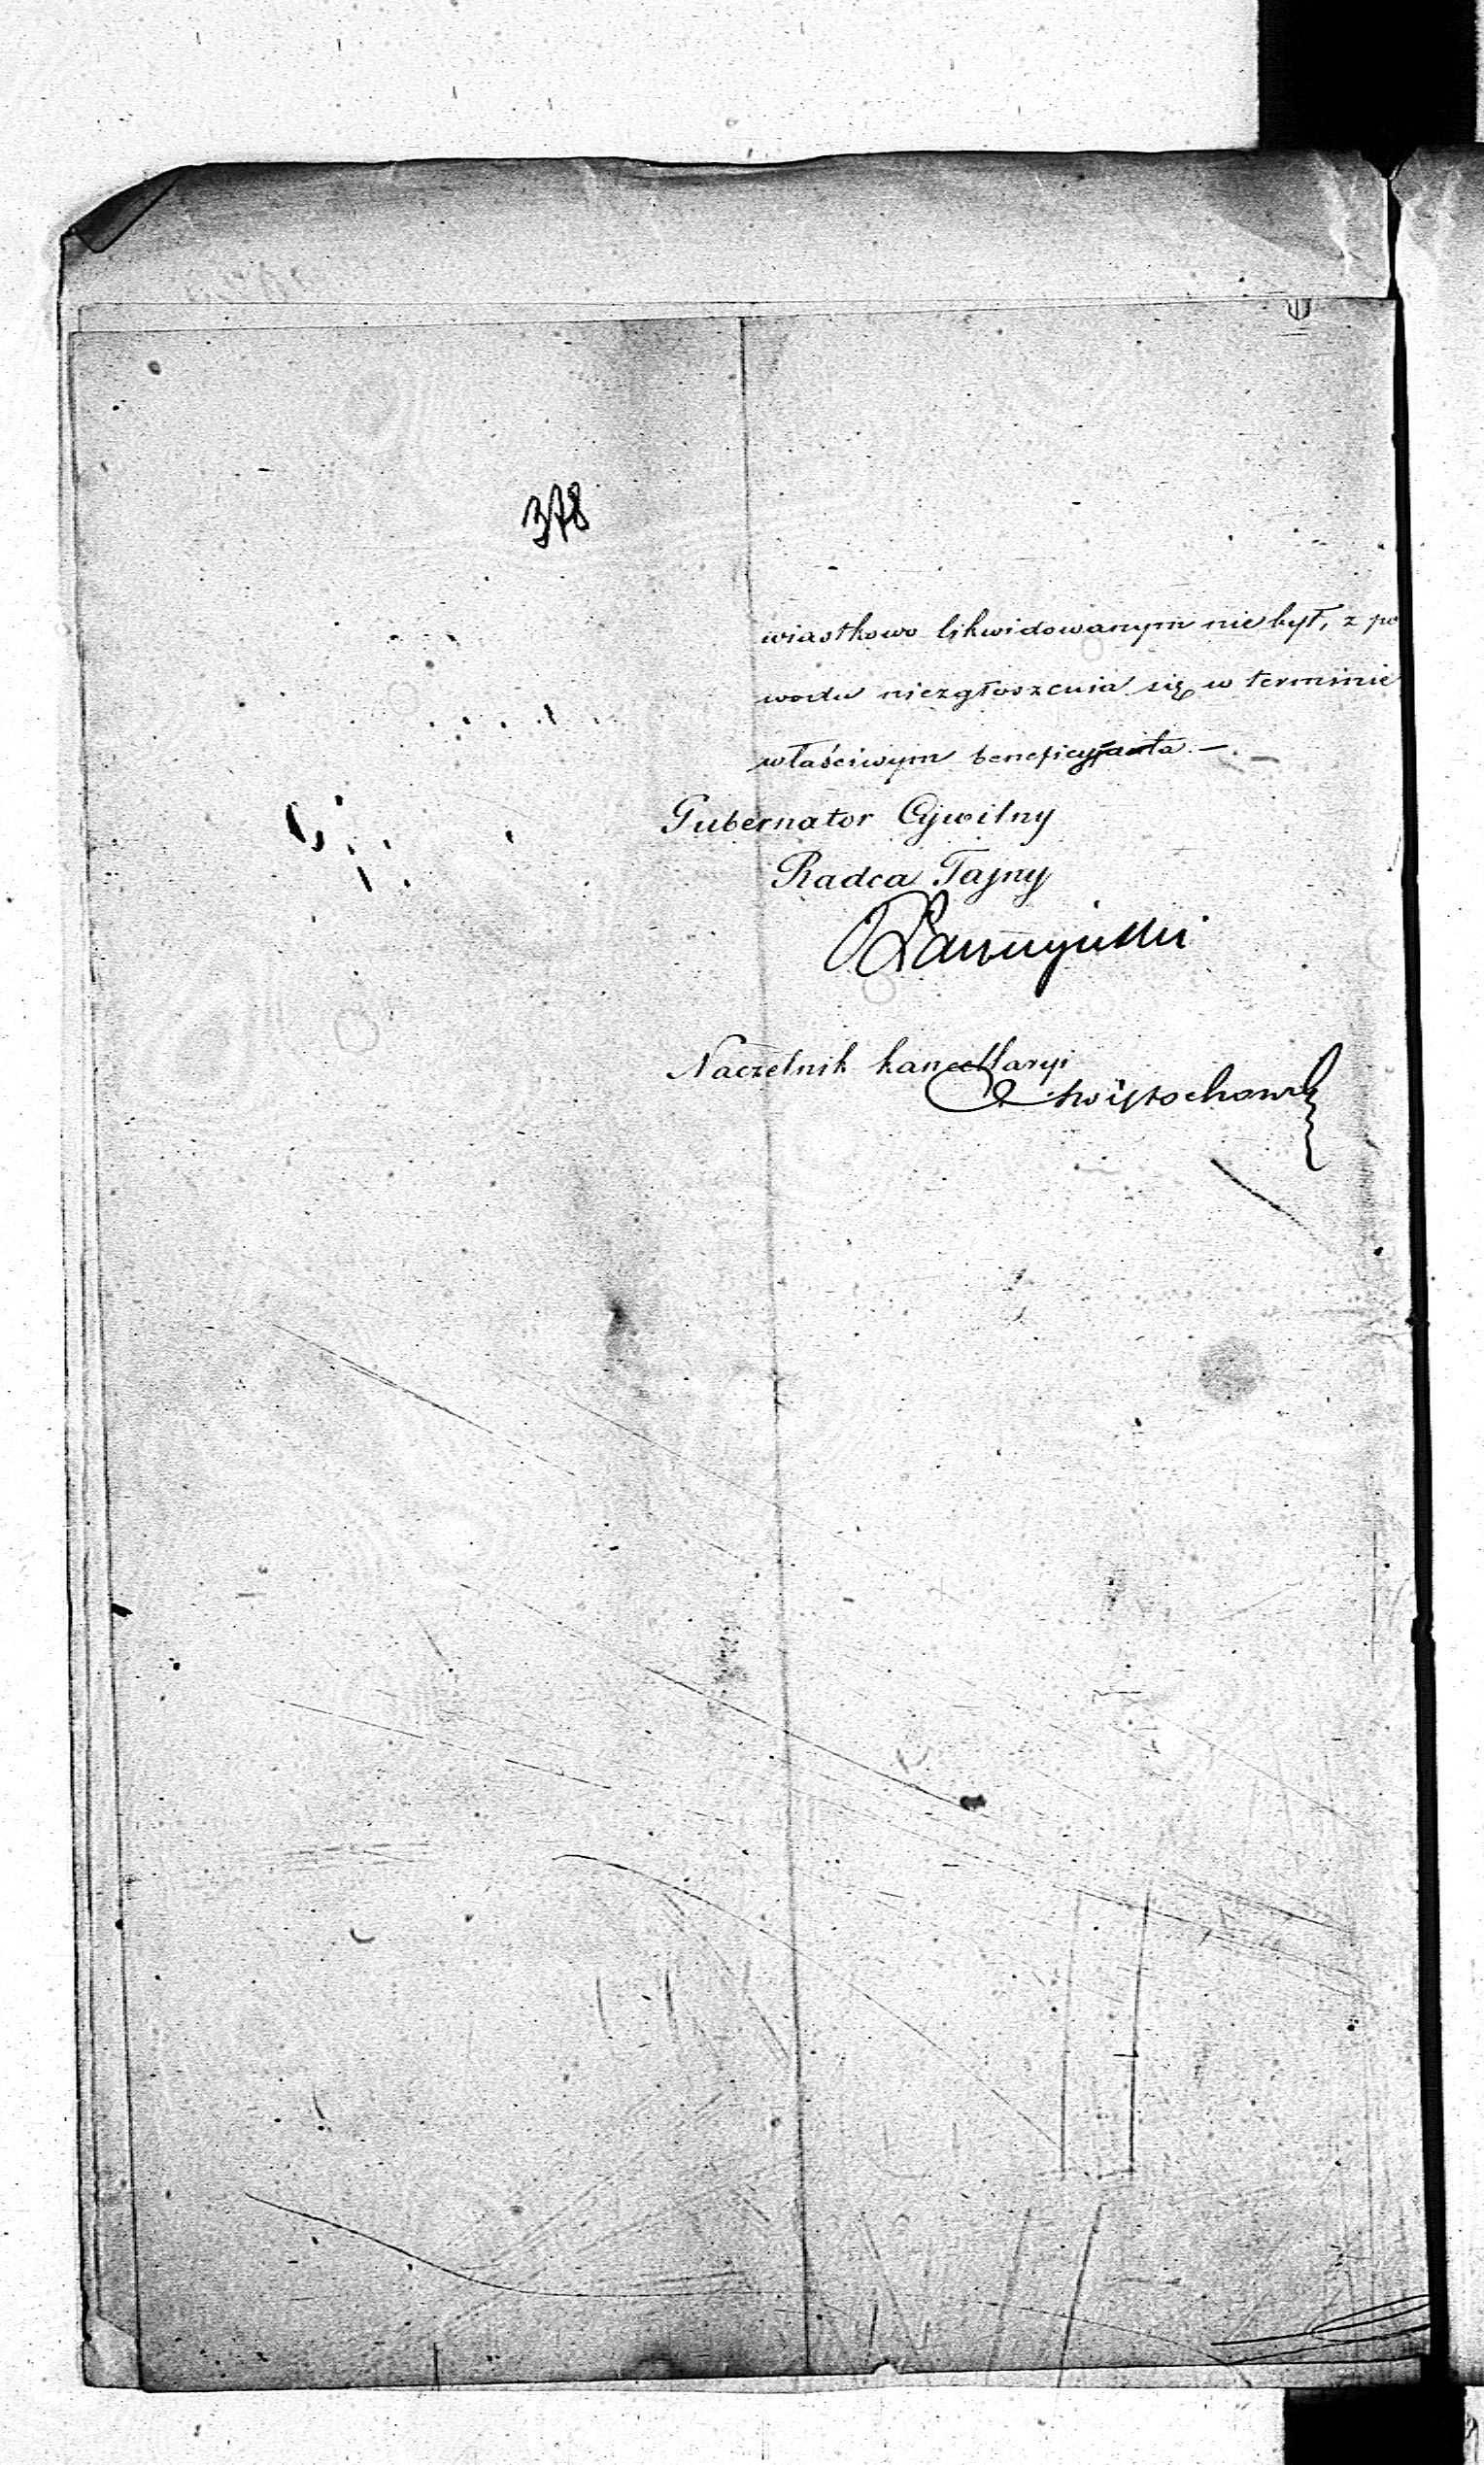 378
wiastkowo likwidowanym nie był, z po
wodu niezgłoszenia się w terminie
właściwym beneficyjanta. —
Gubernator Cywilny
Radca Tajny
Naczelnik kancellaryi